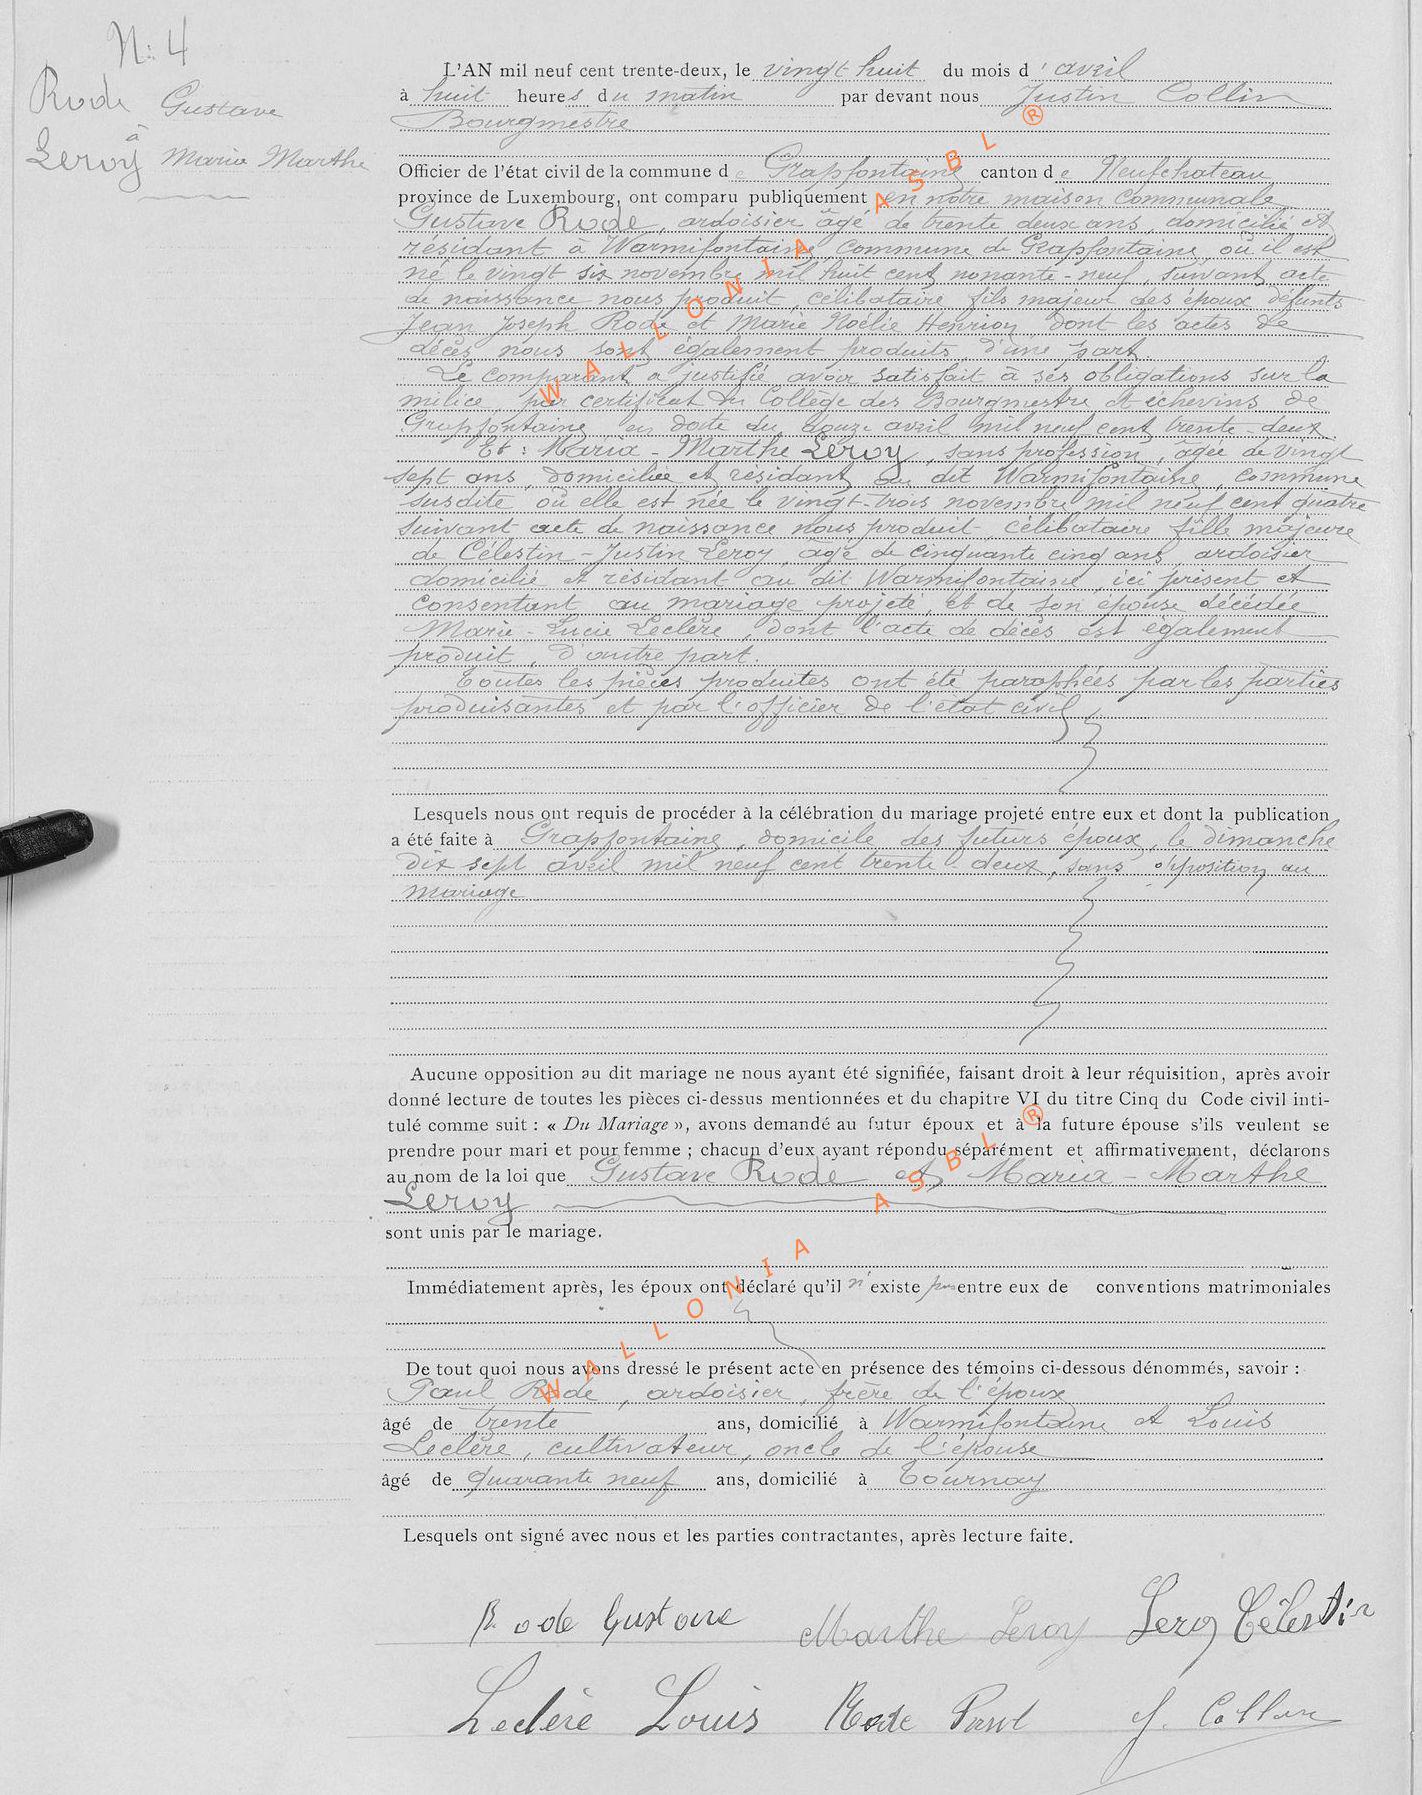 N: 4
Rode Gustave
à
Leroy Maria Marthe
L'AN mil neuf cent trente-deux, le vingt huit du mois d'avril
à huit heures du matin par devant nous Justin Collin
Bourgmestre
Officier de l'état civil de la commune de Grapfontaine canton de Neufchateau
province de Luxembourg, ont comparu publiquement en notre maison communale
Gustave Rode, ardoisier âgé de trente deux ans, domicilié et
résidant à Warmifontaine commune de Grapfontaine, où il est
né le vingt six novembre mil huit cent nonante-neuf, suivant acte
de naissance nous produit, célibataire fils majeur des époux défunts
Jean Joseph Rode et Marie Noélie Henrion dont les actes de
décès nous sont également produits, d'une part.
Le comparant a justifié avoir satisfait à ses obligations sur la
milice par certificat du Collège des Bourgmestre et échevins de
Grapfontaine en date du douze avril mil neuf cent trente-deux.
Et : Maria - Marthe Leroy, sans profession, âgée de vingt
sept ans, domiciliée et résidant au dit Warmifontaine, commune
susdite où elle est née le vingt-trois novembre mil neuf cent quatre
suivant acte de naissance nous produit, célibataire fille majeure
de Célestin-Justin Leroy, âgé de cinquante cinq ans, ardoisier
domicilié et résidant au dit Warmifontaine, ici présent et
consentant au mariage projeté, et de son épouse décédée
Marie-Lucie Leclère, dont l'acte de décès est également
produit, d'autre part.
Toutes les pièces produites ont été paraphées par les parties
produisantes et par l'officier de l'état civil
Lesquels nous ont requis de procéder à la célébration du mariage projeté entre eux et dont la publication
a été faite à Grapfontaine, domicile des futurs époux, le dimanche
dix sept avril mil neuf cent trente-deux, sans opposition au
mariage
Aucune opposition au dit mariage ne nous ayant été signifiée, faisant droit à leur réquisition, après avoir
donné lecture de toutes les pièces ci-dessus mentionnées et du chapitre VI du titre Cinq du Code civil inti-
tulé comme suit : « Du Mariage », avons demandé au futur époux et à la future épouse s'ils veulent se
prendre pour mari et pour femme ; chacun d'eux ayant répondu séparément et affirmativement, déclarons
au nom de la loi que Gustave Rode et Maria - Marthe
Leroy
sont unis par le mariage.
Immédiatement après, les époux ont déclaré qu'il n'existe pas entre eux de conventions matrimoniales
De tout quoi nous avons dressé le présent acte en présence des témoins ci-dessous dénommés, savoir :
Paul Rode, ardoisier, frère de l'époux
âgé de trente ans, domicilié à Warmifontaine et Louis
Leclère, cultivateur, oncle de l'épouse
âgé de quarante neuf ans, domicilié à Tournay
Lesquels ont signé avec nous et les parties contractantes, après lecture faite.
Rode Gustave Marthe Leroy Leroy Célestin
Leclère Louis Rode Paul J. Collin
WALLONIA ASBL ®
WALLONIA ASBL ®